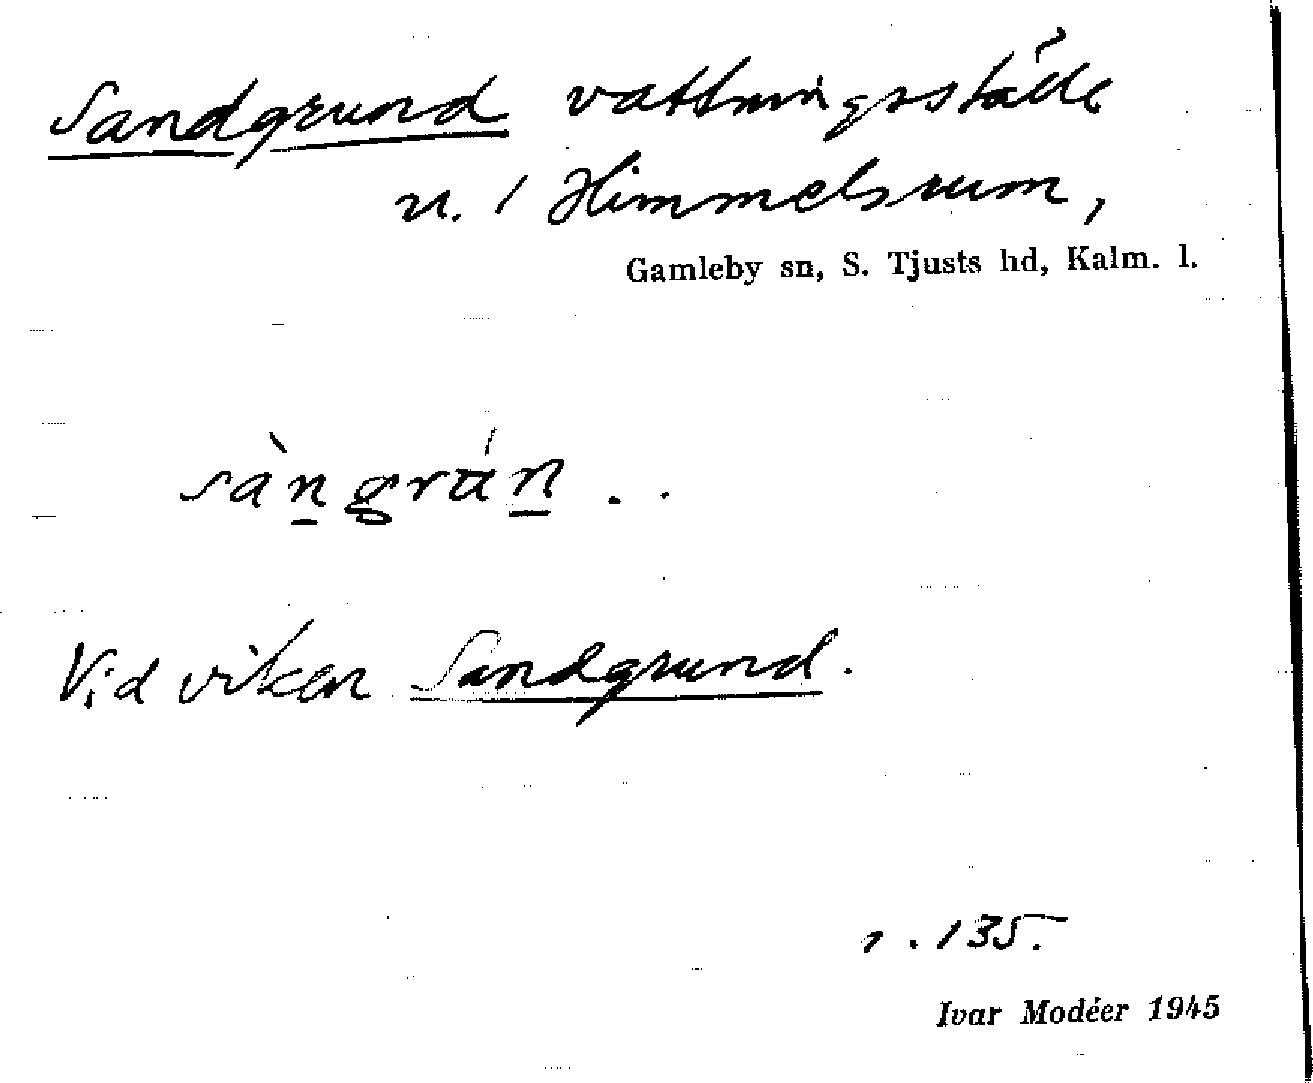 Sandgrund vattningsställe
u. / Himmelsrum,
Gamleby sn, S. Tjusts hd, Kalm. l.
sàngrún ..
Vid viken Sandgrund.
s. 135.
Ivar Modéer 1945